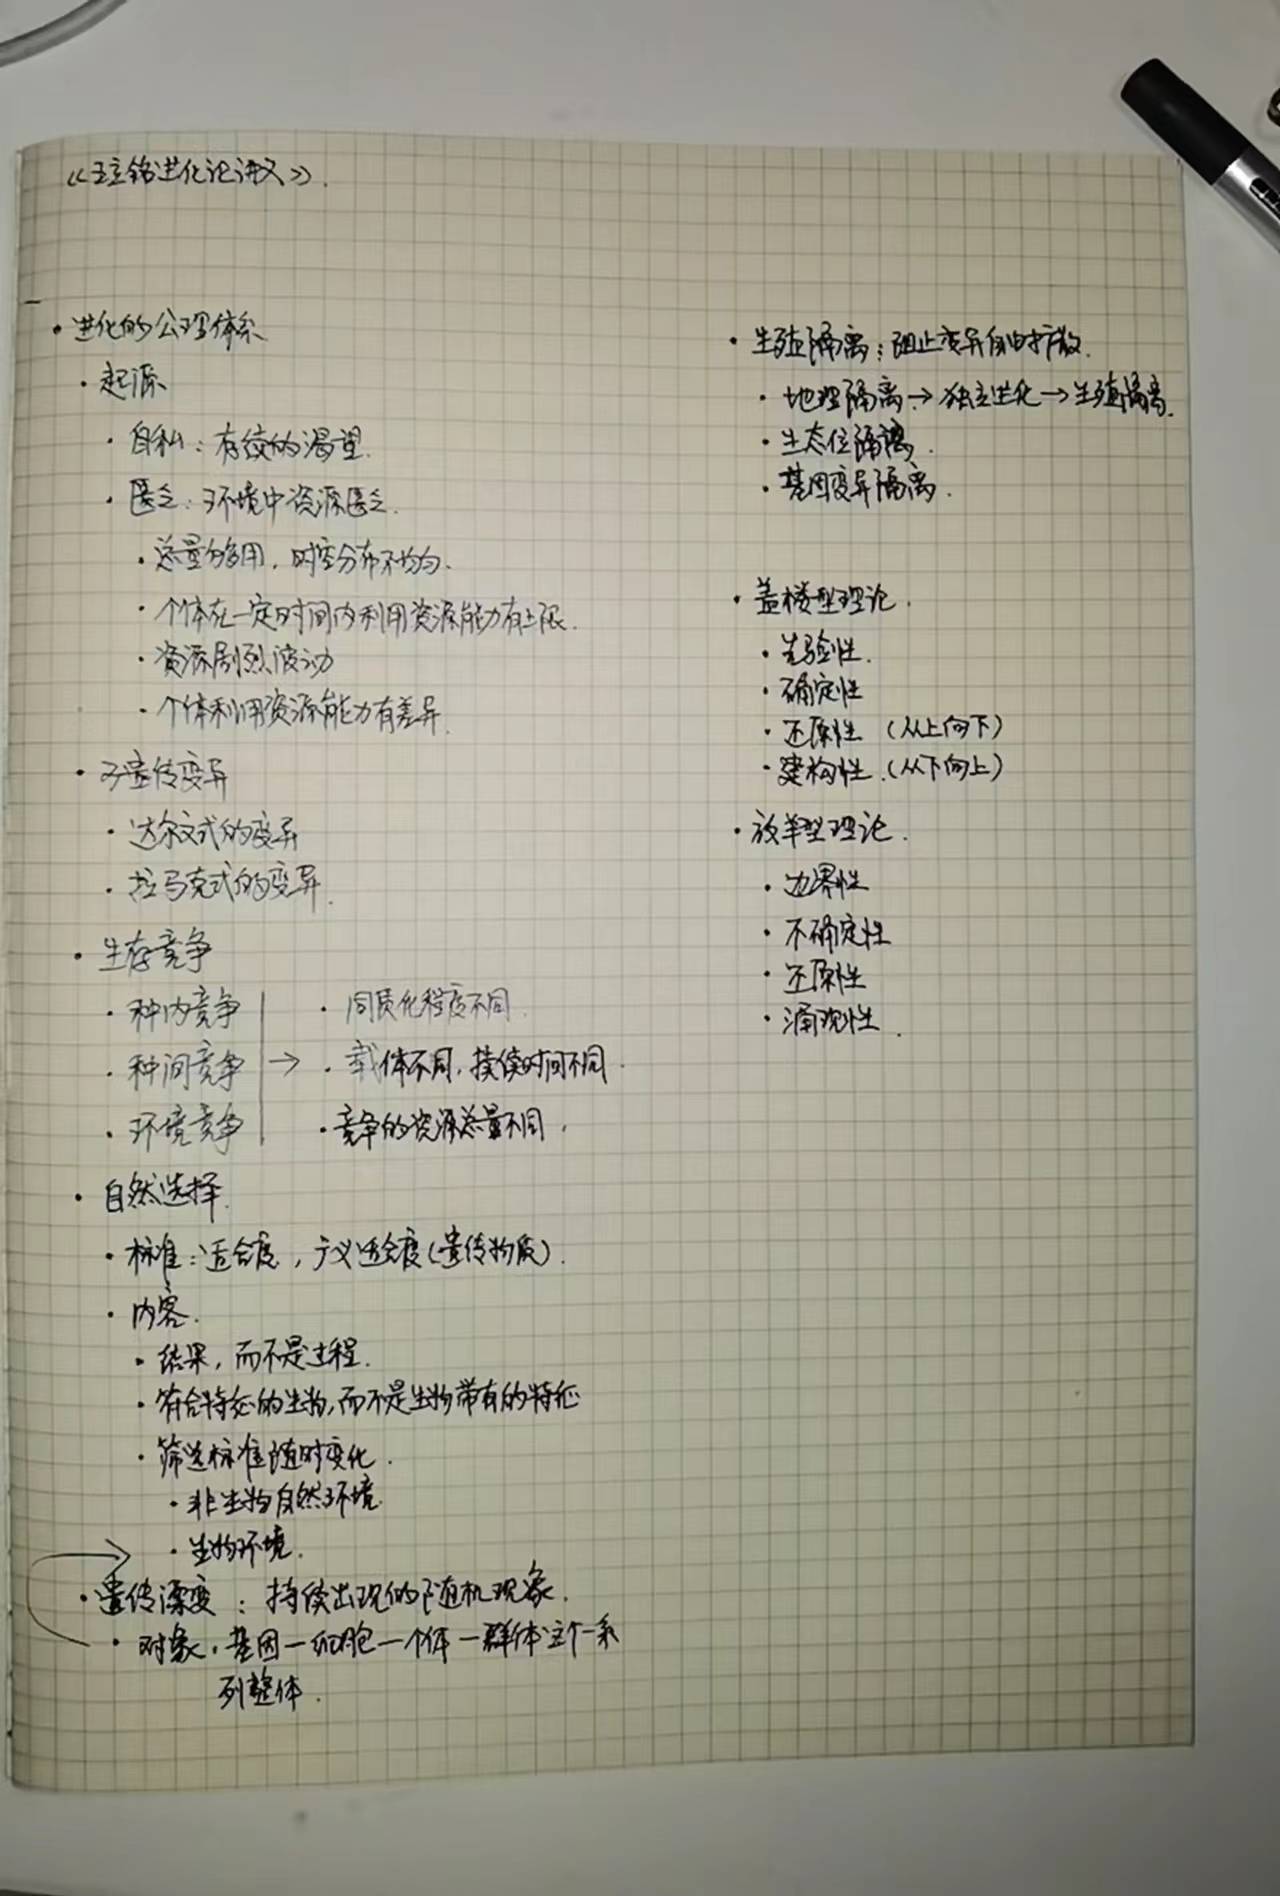 《王立铭进化论讲义》.
· 进化的公理体系
· 起源
· 自私：存续的渴望.
· 匮乏：环境中资源匮乏.
· 总量够用，时空分布不均匀.
· 个体在一定时间内利用资源能力有上限.
· 资源剧烈波动
· 个体利用资源能力有差异.
· 可遗传变异
· 达尔文式的变异
· 拉马克式的变异.
· 生存竞争
· 种内竞争
· 种间竞争
· 环境竞争
→
· 同质化程度不同.
· 载体不同，持续时间不同.
· 竞争的资源总量不同.
· 自然选择.
· 标准：适合度，广义适合度(遗传物质).
· 内容.
· 结果，而不是过程.
· 符合特征的生物，而不是生物带有的特征
· 筛选标准随时变化.
· 非生物自然环境.
· 生物环境.
· 遗传漂变：持续出现的随机现象.
· 对象，基因—细胞—个体—群体这个一系
列整体.
· 生殖隔离：阻止变异自由扩散.
· 地理隔离→独立进化→生殖隔离.
· 生态位隔离.
· 基因变异隔离.
· 盖楼型理论.
· 先验性.
· 确定性
· 还原性（从上向下）
· 建构性.（从下向上）
· 放羊型理论.
· 边界性
· 不确定性
· 还原性
· 涌现性.